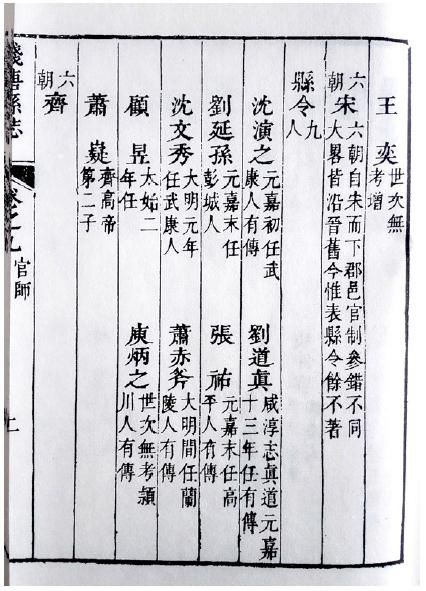 王奕 世次無考增
六朝宋 六朝自宋而下郡邑官制參錯不同大畧皆沿晉舊今惟表縣令餘不著
縣令九人
沈演之 元嘉初任武康人有傳 劉道眞 咸淳志眞道元嘉十三年任有傳
劉延孫 元嘉末任彭城人 張祐 元嘉末任高平人有傳
沈文秀 大明元年任武康人 蕭赤斧 大明間任蘭陵人有傳
顧昱 太始二年任 庾炳之 世次無考潁川人有傳
蕭嶷 齊高帝第二子
六朝齊
錢塘縣志 卷之九 官師